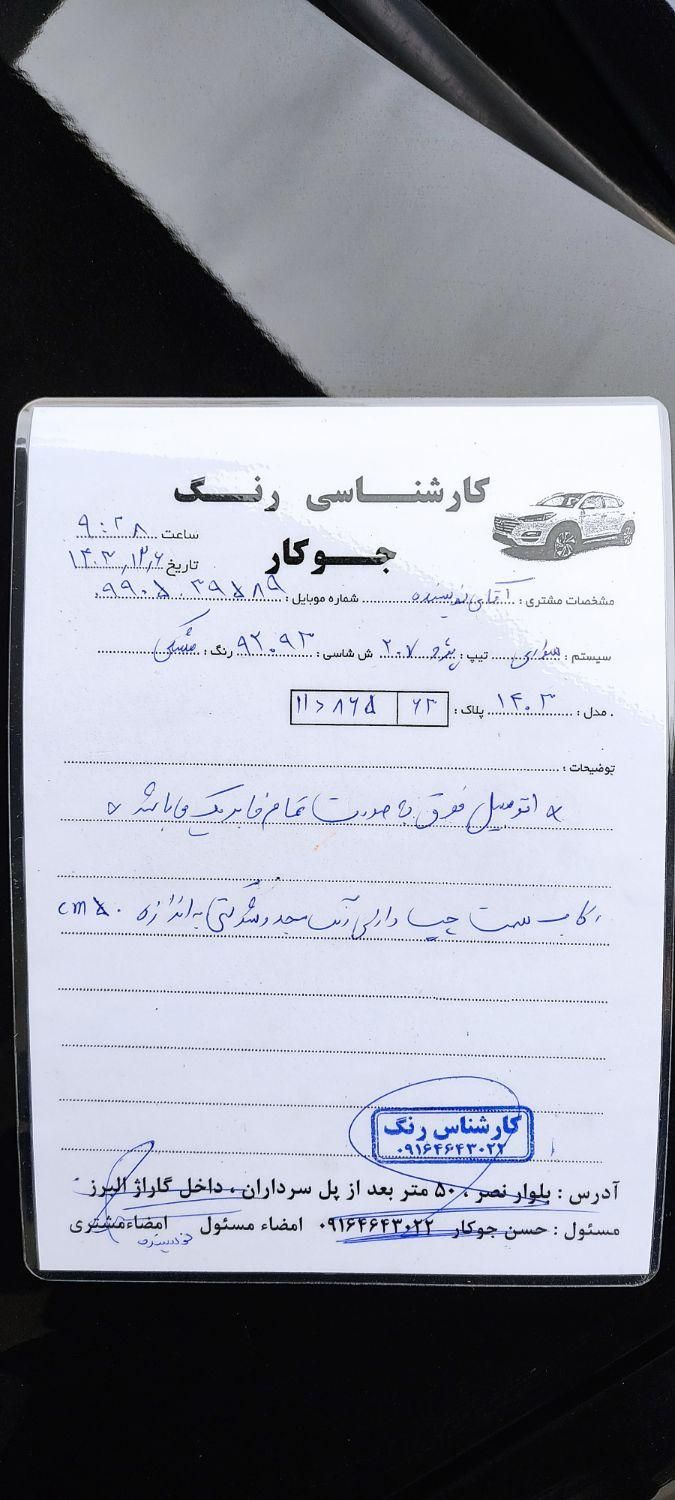 کارشناسی رنگ
جوکار
ساعت ۹:۲۸
تاریخ ۱۴۰۳,۱۲,۶
مشخصات مشتری : آقای نویسنده شماره موبایل : ۰۹۹۰۵۰۳۹۵۸۹
سیستم : سواری تیپ : پژو ۲۰۷ ش شاسی : ۹۲۰۹۳ رنگ : مشکی
مدل : ۱۴۰۳ پلاک : ۶۳ ۱۱د۸۶۵
توضیحات :
× اتومبیل فوق به صورت تمام فابریک می باشد ×
رکاب سمت چپ دارای رنگ مجدد به اندازه ۵۰ cm
کارشناس رنگ
۰۹۱۶۴۶۴۳۰۲۲
آدرس : بلوار نصر ، ۵۰ متر بعد از پل سرداران ، داخل گاراژ البرز
مسئول : حسن جوکار ۰۹۱۶۴۶۴۳۰۲۲ امضاء مسئول امضاءمشتری
نویسنده